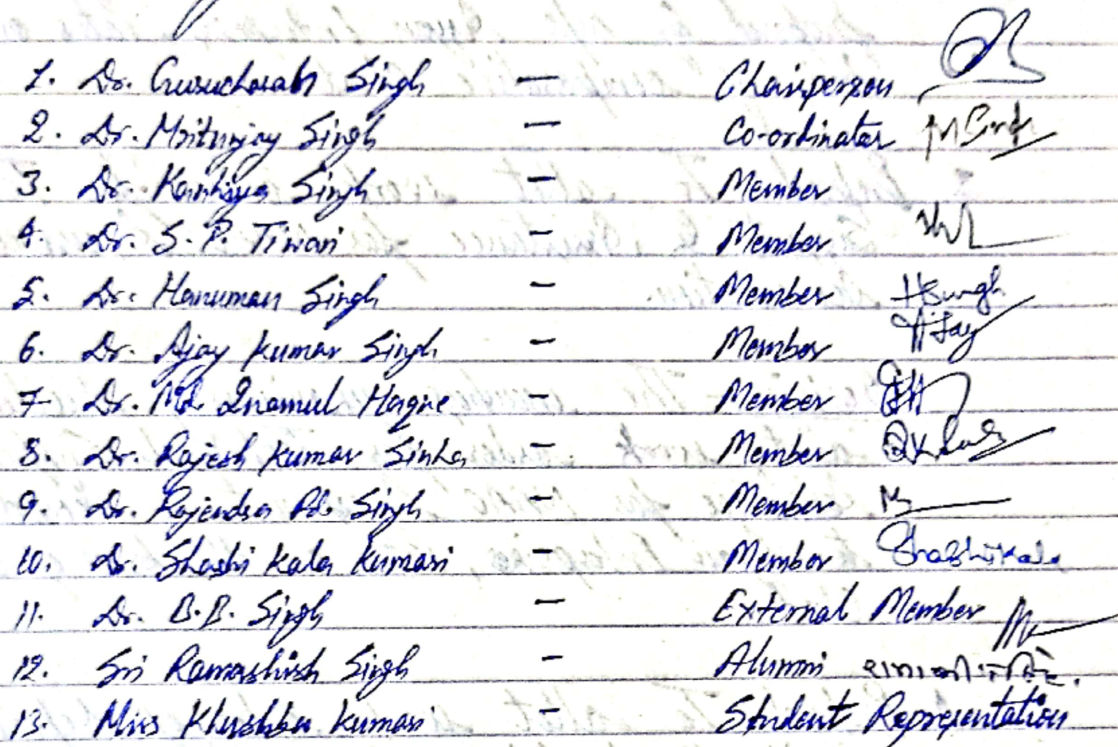 1. Dr. Gurucharan Singh – Chairperson
2. Dr. Mritunjay Singh – Co-ordinator
3. Dr. Kanhiya Singh – Member
4. Dr. S. P. Tiwari – Member
5. Dr. Hanuman Singh – Member HSingh
6. Dr. Ajay Kumar Singh – Member Ajay
7 Dr. Md. Inamul Haque – Member
8. Dr. Rajesh Kumar Sinha – Member
9. Dr. Rajendra Pd. Singh – Member
10. Dr. Shashi Kala Kumari – Member Shashikala
11. Dr. B.B. Singh – External Member
12. Sri Ramashish Singh – Alumni
13. Miss Khushbu Kumari – Student Representation